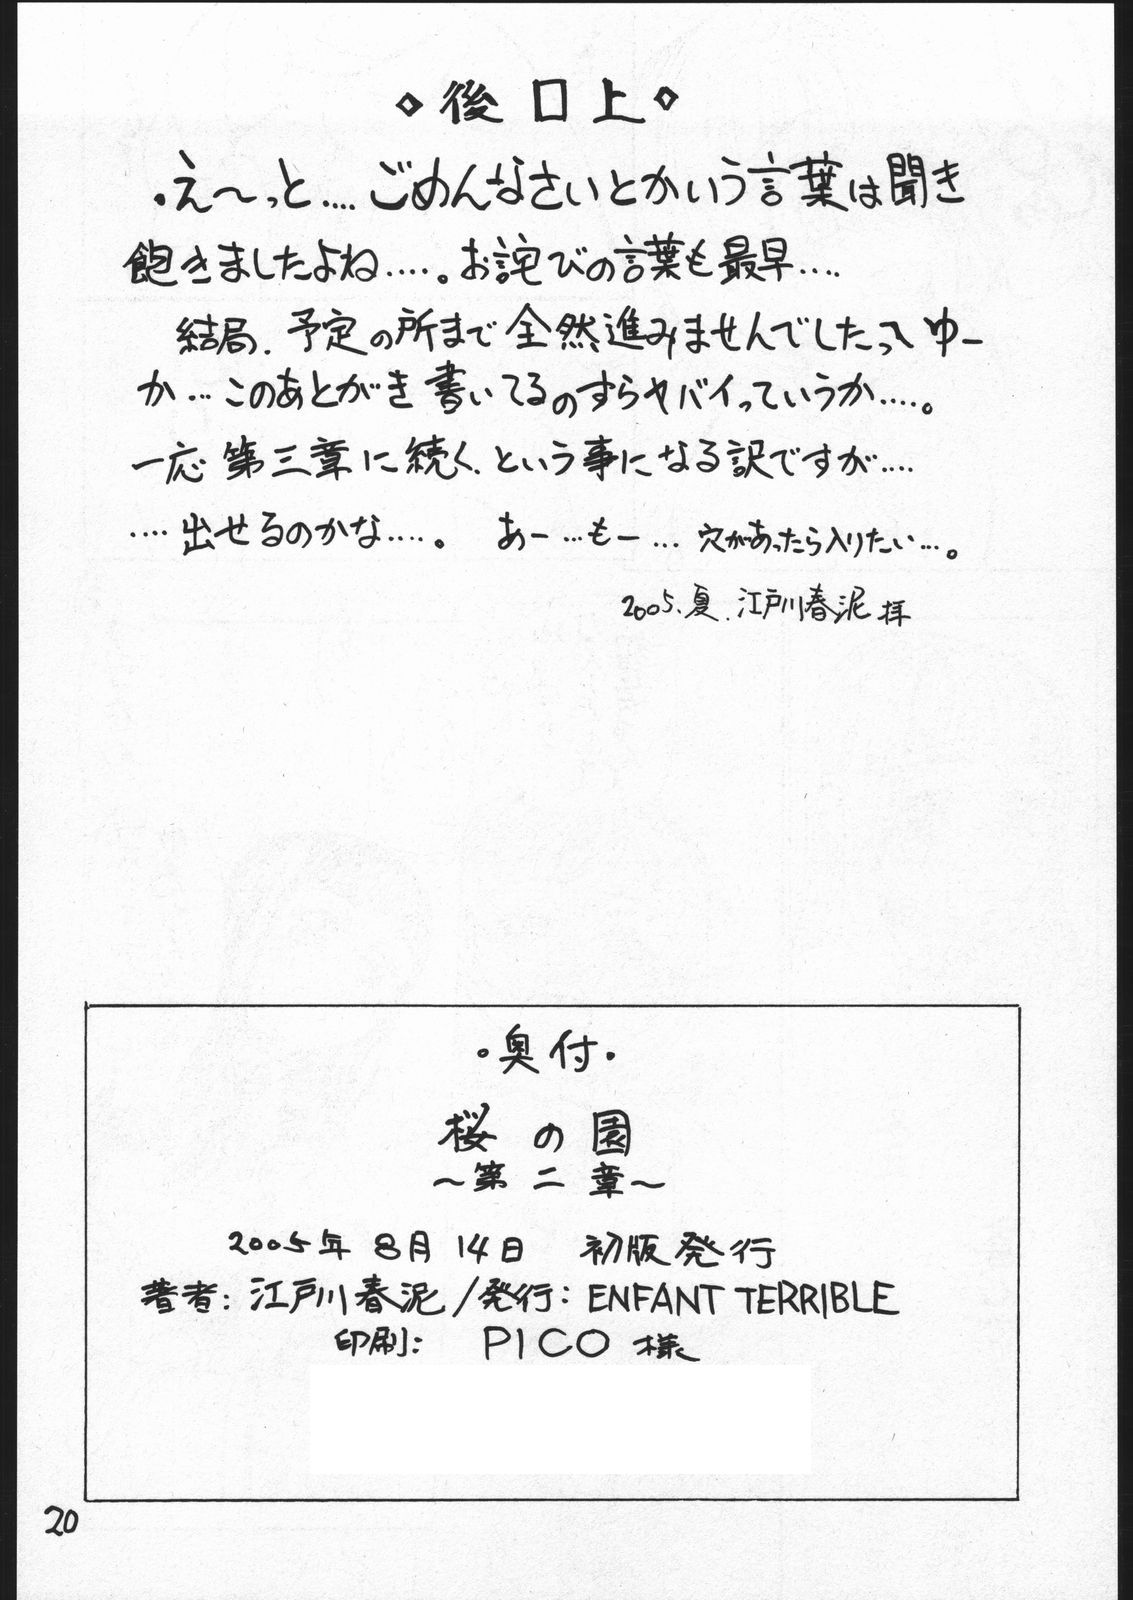 ◇後口上◇
・え～っと‥‥ごめんなさいとかいう言葉は聞き
飽きましたよね‥‥。お詫びの言葉も最早‥‥
結局、予定の所まで全然進みませんでしたってゆー
か…このあとがき書いてるのすらヤバイっていうか‥‥。
一応第三章に続く、という事になる訳ですが‥‥
‥‥出せるのかな‥‥。 あー…もー… 穴があったら入りたい…。
2005.夏.江戸川春泥 拝
・奥付・
桜の園
～第二章～
2005年 8月 14日 初版発行
著者: 江戸川春泥/発行: ENFANT TERRIBLE
印刷: PICO 様
20